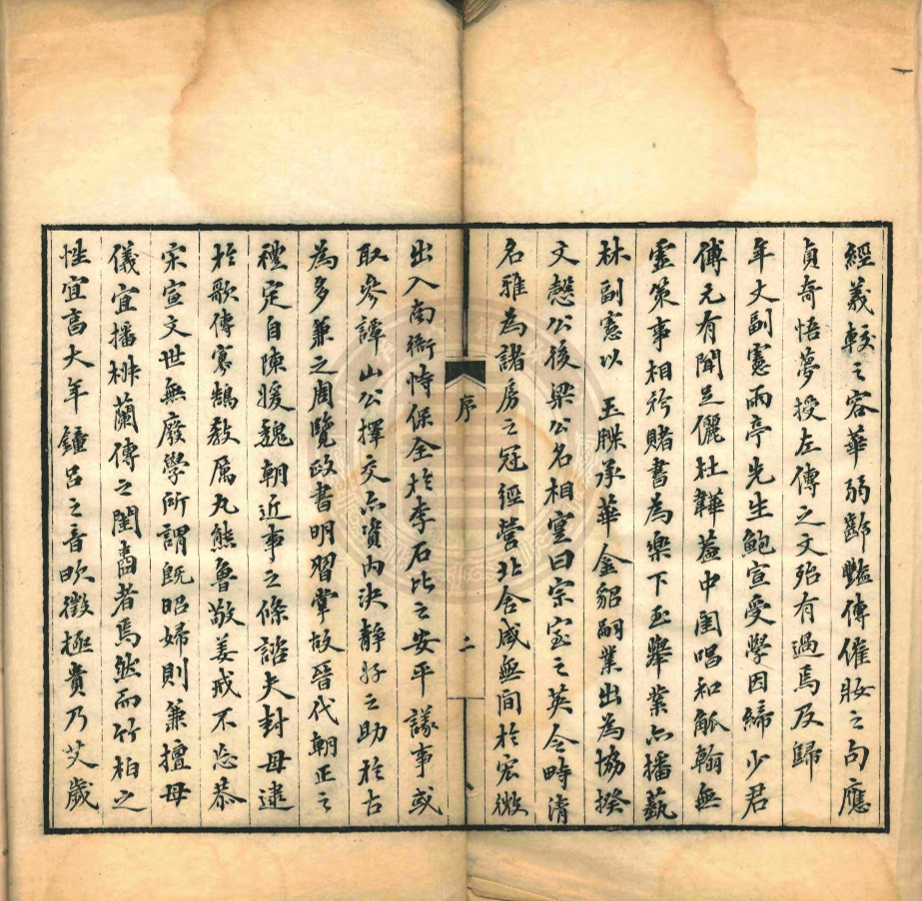 經義較之容華弱齡豔傳催妝之句應
貞奇悟夢授左傳之文殆有過焉及歸
年丈副憲雨亭先生鮑宣受學因締少君
傅元有聞足儷杜韡蓋中閨唱和觚翰無
靈策事相矜賭書為樂下至舉業亦播藝
林副憲以　玉牒承華金貂嗣業出為協揆
文慤公後梁公名相寔曰宗室之英令時清
名雅為諸房之冠經營北舍咸無間於宏微
序
二
出入南衙恃保全於李石比之安平議事或
取參譚山公擇交亦資內決靜好之助於古
為多兼之周覽政書明習掌故晉代朝正之
禮定自陳媛魏朝近事之條諮夫封母逮
於歌傳寡鵠教厲丸熊魯敬姜戒不忘恭
宋宣文世無廢學所謂既昭婦則兼擅母
儀宜播椒蘭傳之閨者焉然而竹柏之
性宜富大年鐘呂之音昒徵極貴乃艾歲